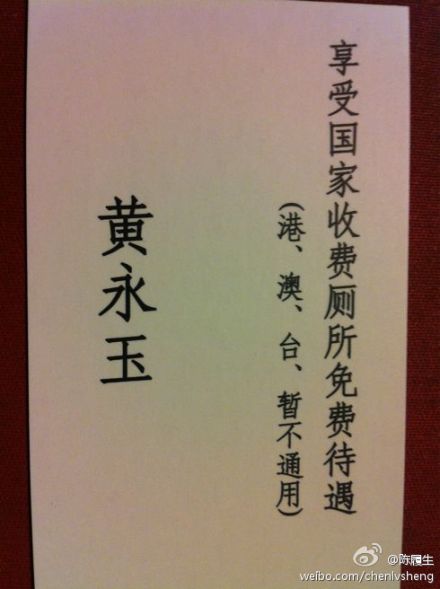 享受国家收费厕所免费待遇
(港、澳、台、暂不通用)
黄永玉
@陈履生
weibo.com/chenlvsheng